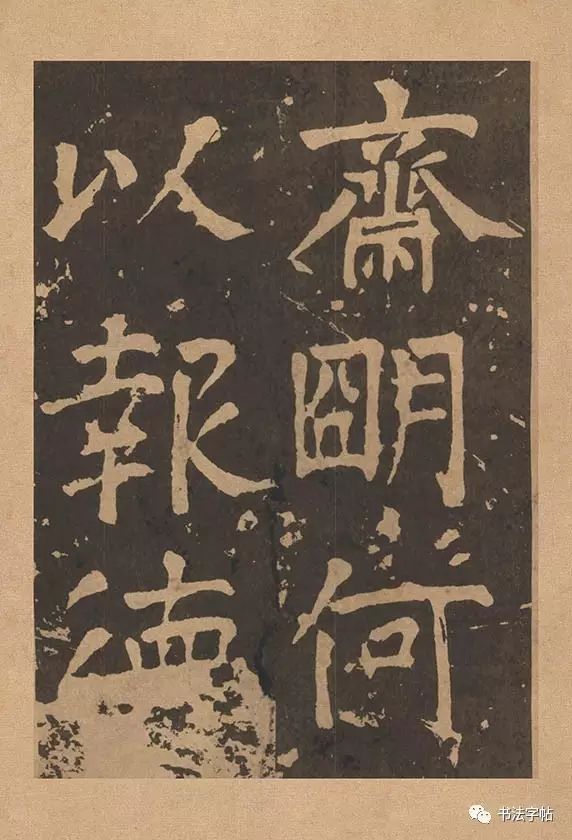 齋朙何
以報德
书法字帖